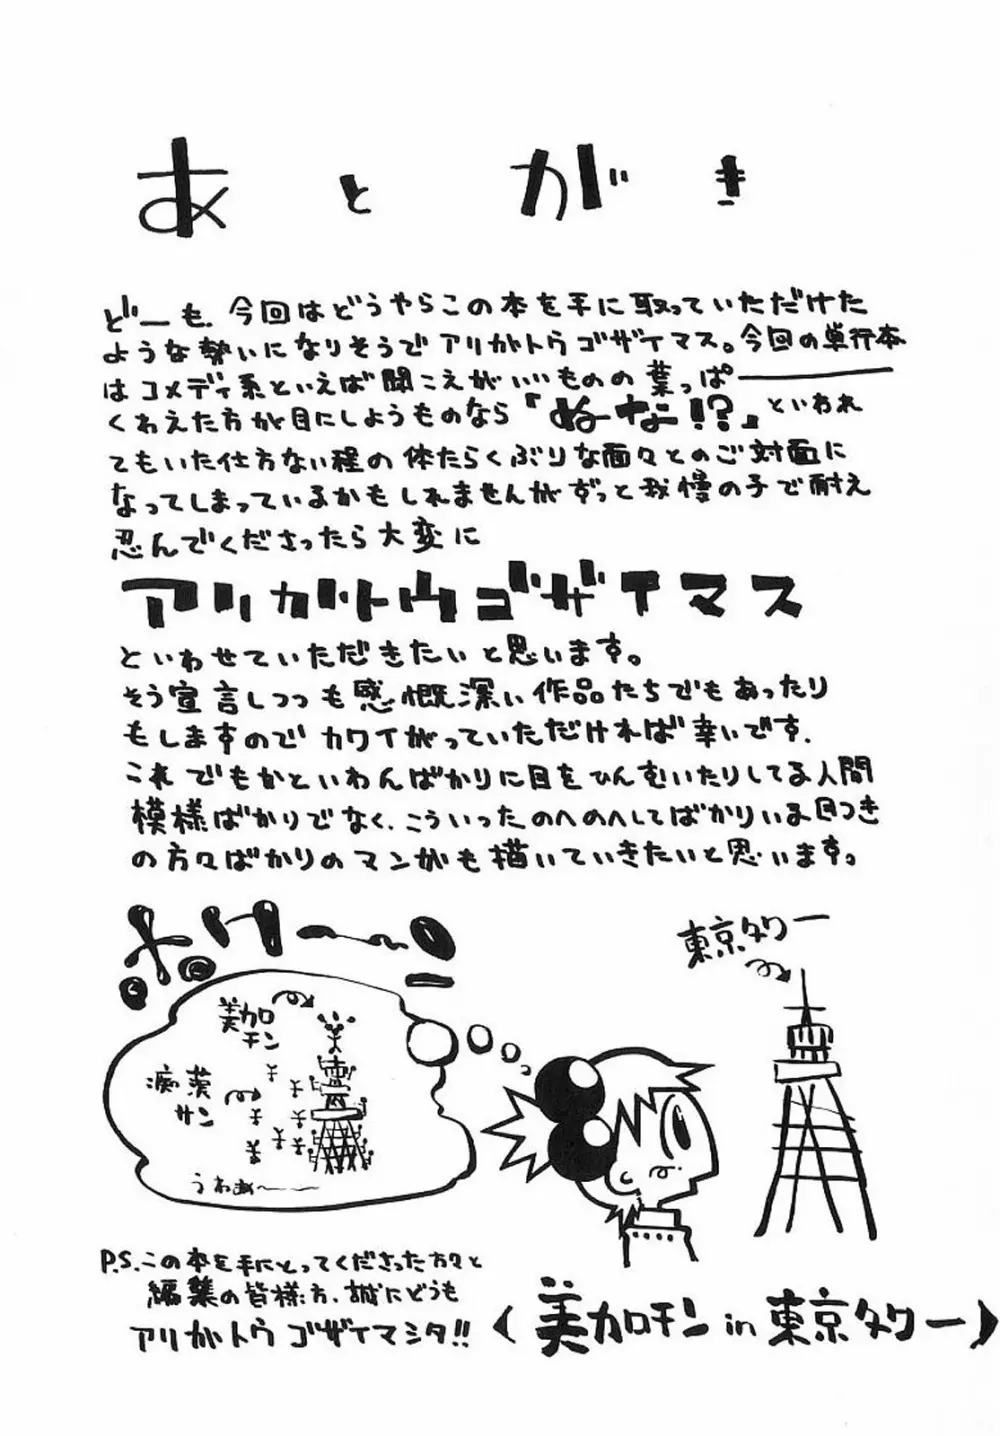 あとがき
どーも、今回はどうやらこの本を手に取っていただけた
ような勢いになりそうでアリガトウゴザイマス。今回の単行本
はコメディ系といえば聞こえがいいものの葉っぱ―――
くわえた方が目にしようものなら『ぬーな!?』といわれ
てもいた仕方ない程の体たらくぶりな面々とのご対面に
なってしまっているかもしれませんがずっと我慢の子で耐え
忍んでくださったら大変に
アリガトウゴザイマス
といわせていただきたいと思います。
そう宣言しつつも感慨深い作品たちでもあったり
もしますのでカワイがっていただければ幸いです.
これでもかといわんばかりに目をひんむいたりしてる人間
模様ばかりでなく、こういったのへのへしてばかりいる目つき
の方々ばかりのマンガも描いていきたいと思います。
東京タワー
美カロ
チン
痴漢
サン
うわぁ〜――
P.S.この本を手にとってくださった方々と
編集の皆様方、誠にどうも
アリガトウゴザイマシタ!!
〈美カロチン in 東京タワー〉